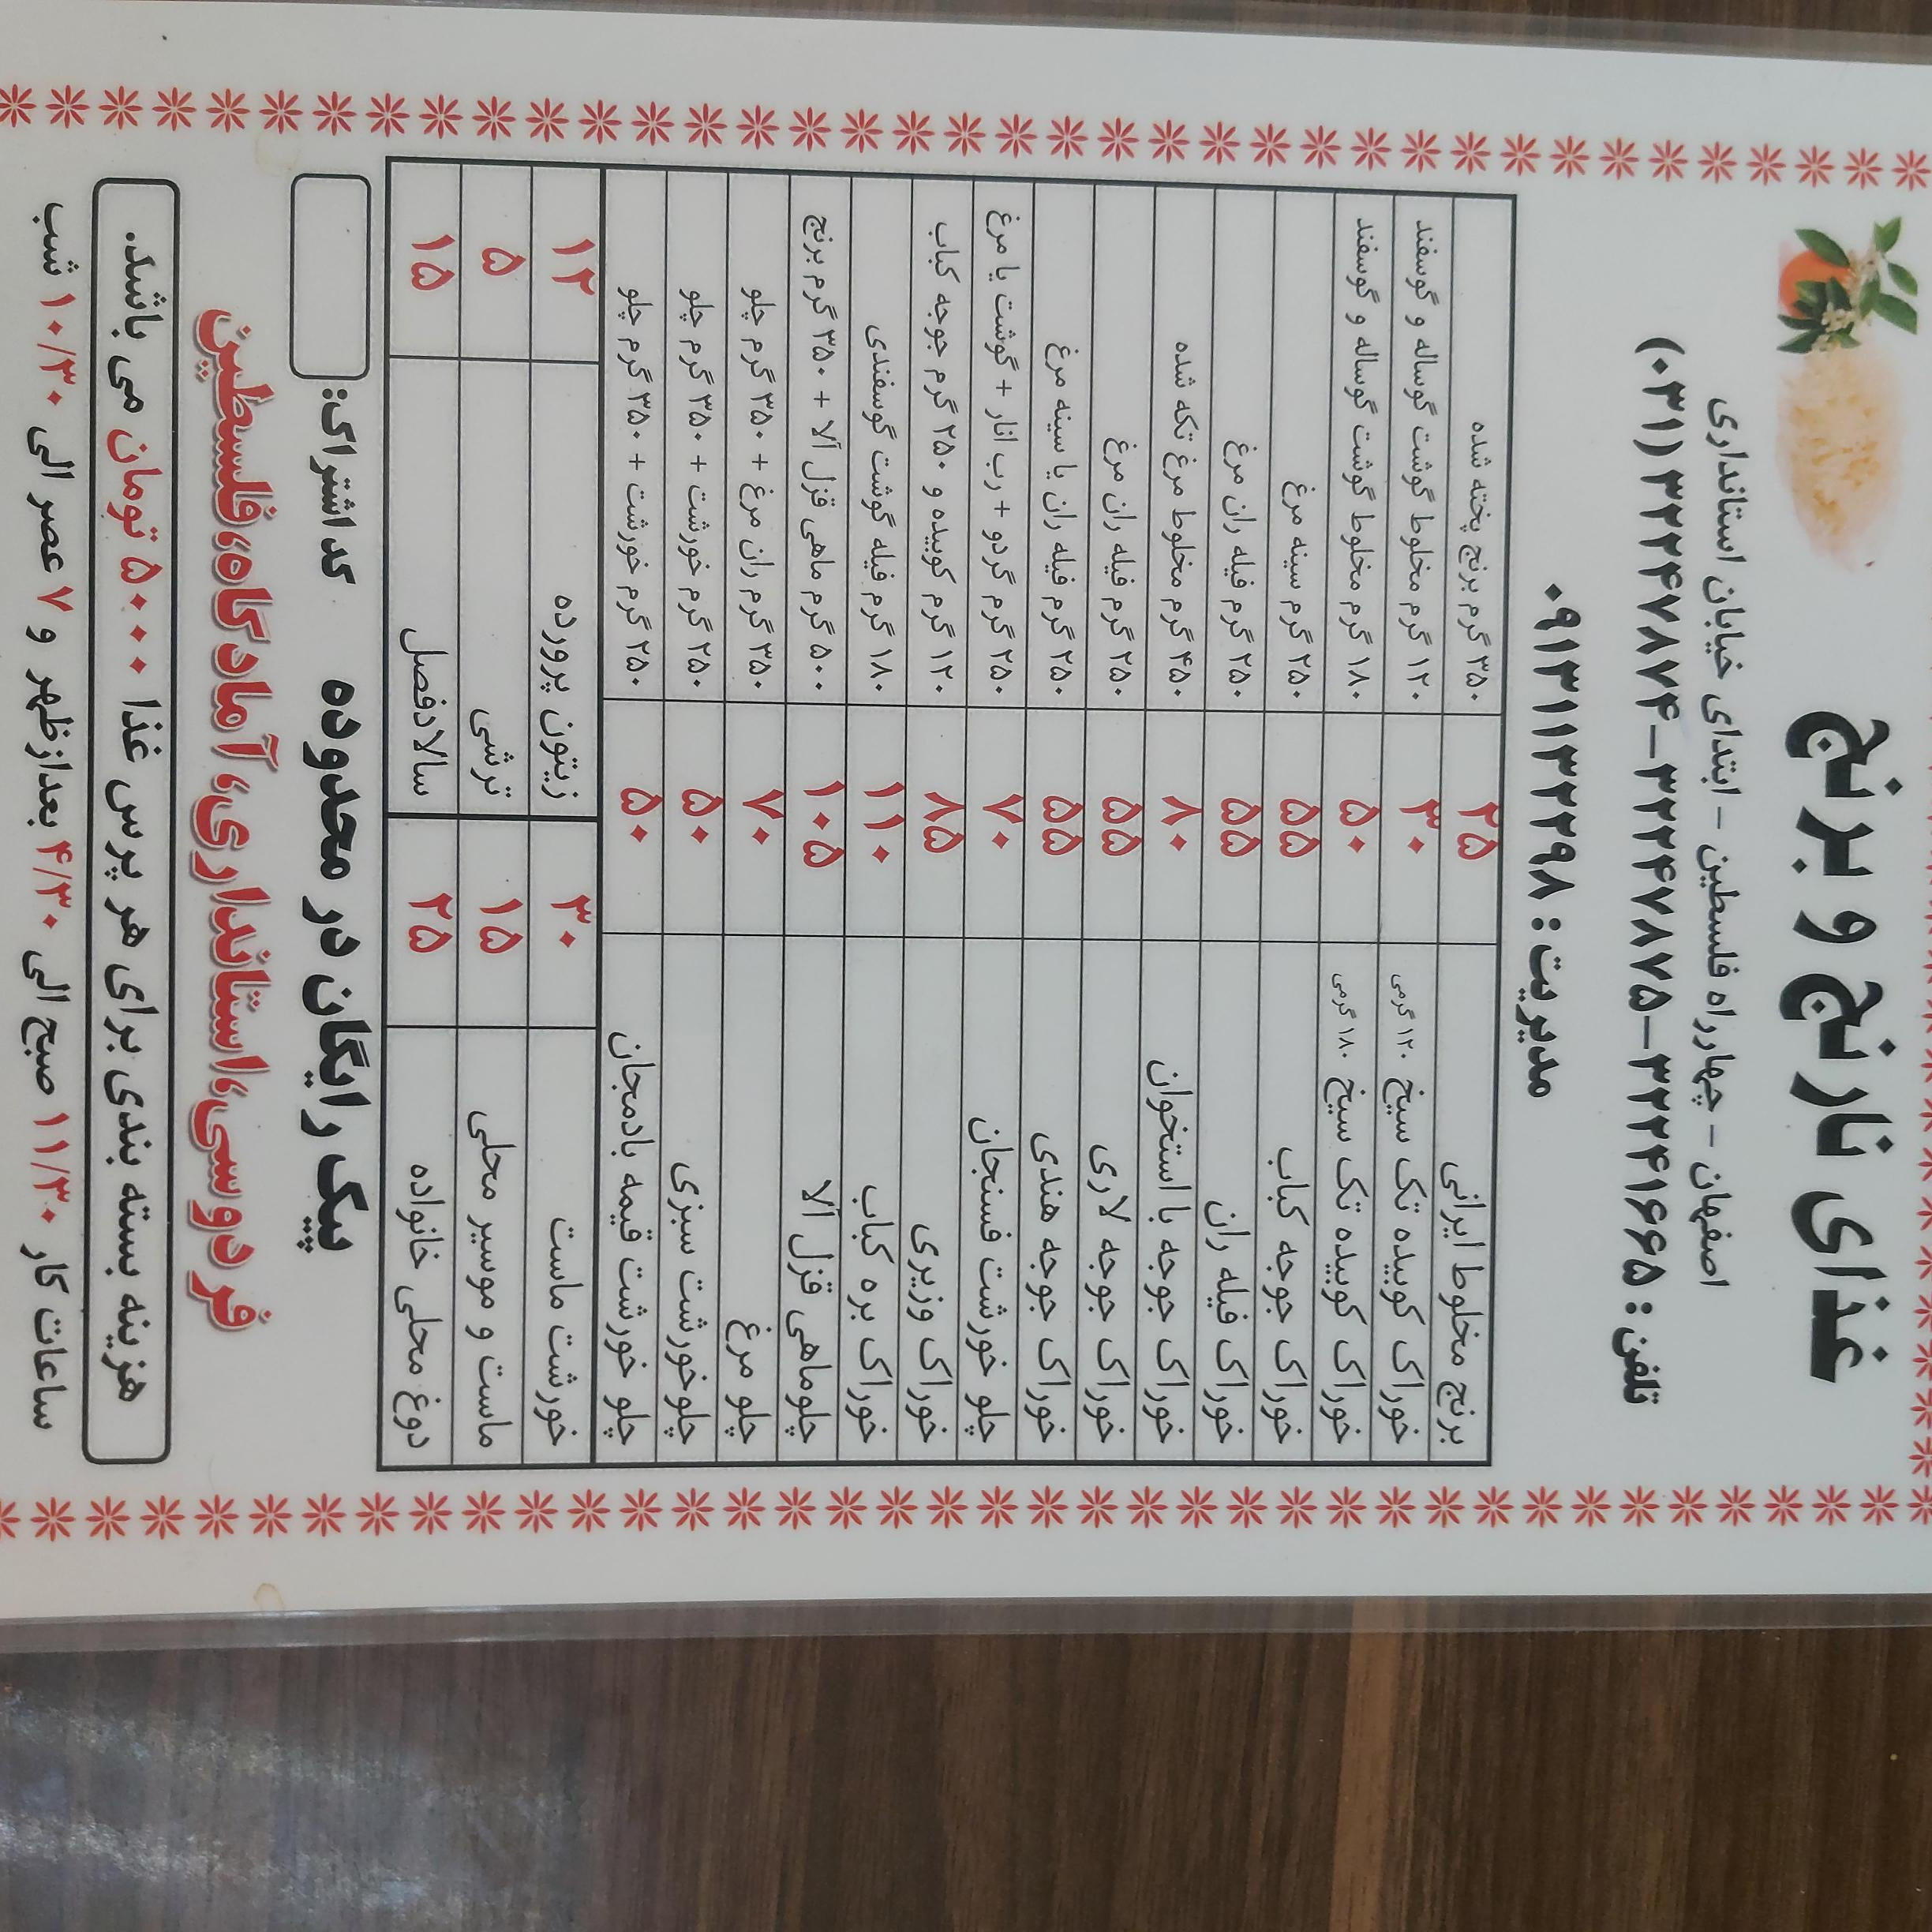 غذای نارنج و برنج
اصفهان - چهارراه فلسطین - ابتدای خیابان استانداری
تلفن: ۳۲۲۴۱۶۶۵-۳۲۲۴۷۸۷۵-۳۲۲۴۷۸۷۴ (۰۳۱)
مدیریت: ۰۹۱۳۳۱۱۳۲۲۹۸
برنج مخلوط ایرانی ۲۵ ۳۵۰ گرم برنج پخته شده
خوراک کوبیده تک سیخ ۱۲۰ گرمی ۳۰ ۱۲۰ گرم مخلوط گوشت گوساله و گوسفند
خوراک کوبیده تک سیخ ۱۸۰ گرمی ۵۰ ۱۸۰ گرم مخلوط گوشت گوساله و گوسفند
خوراک جوجه کباب ۵۵ ۲۵۰ گرم سینه مرغ
خوراک فیله ران ۵۵ ۲۵۰ گرم فیله ران مرغ
خوراک جوجه با استخوان ۸۰ ۴۵۰ گرم مخلوط مرغ تکه شده
خوراک جوجه لاری ۵۵ ۲۵۰ گرم فیله ران مرغ
خوراک جوجه هندی ۵۵ ۲۵۰ گرم فیله ران یا سینه مرغ
چلو خورشت فسنجان ۷۰ ۲۵۰ گرم گردو + رب انار + گوشت یا مرغ
خوراک وزیری ۸۵ ۱۲۰ گرم کوبیده و ۲۵۰ گرم جوجه کباب
خوراک بره کباب ۱۱۰ ۱۸۰ گرم فیله گوشت گوسفندی
چلوماهی قزل آلا ۱۰۵ ۵۰۰ گرم ماهی قزل آلا + ۳۵۰ گرم برنج
چلو مرغ ۷۰ ۳۵۰ گرم ران مرغ + ۳۵۰ گرم چلو
چلوخورشت سبزی ۵۰ ۲۵۰ گرم خورشت + ۳۵۰ گرم چلو
چلو خورشت قیمه بادمجان ۵۰ ۲۵۰ گرم خورشت + ۳۵۰ گرم چلو
خورشت ماست ۳۰ زیتون پرورده ۱۲
ماست و موسیر محلی ۱۵ ترشی ۵
دوغ محلی خانواده ۲۵ سالادفصل ۱۵
پیک رایگان در محدوده کد اشتراک:
فردوسی،استانداری،آمادگاه،فلسطین
هزینه بسته بندی برای هر پرس غذا ۵۰۰۰ تومان می باشد.
ساعات کار ۱۱/۳۰ صبح الی ۴/۳۰ بعدازظهر و ۷ عصر الی ۱۰/۳۰ شب